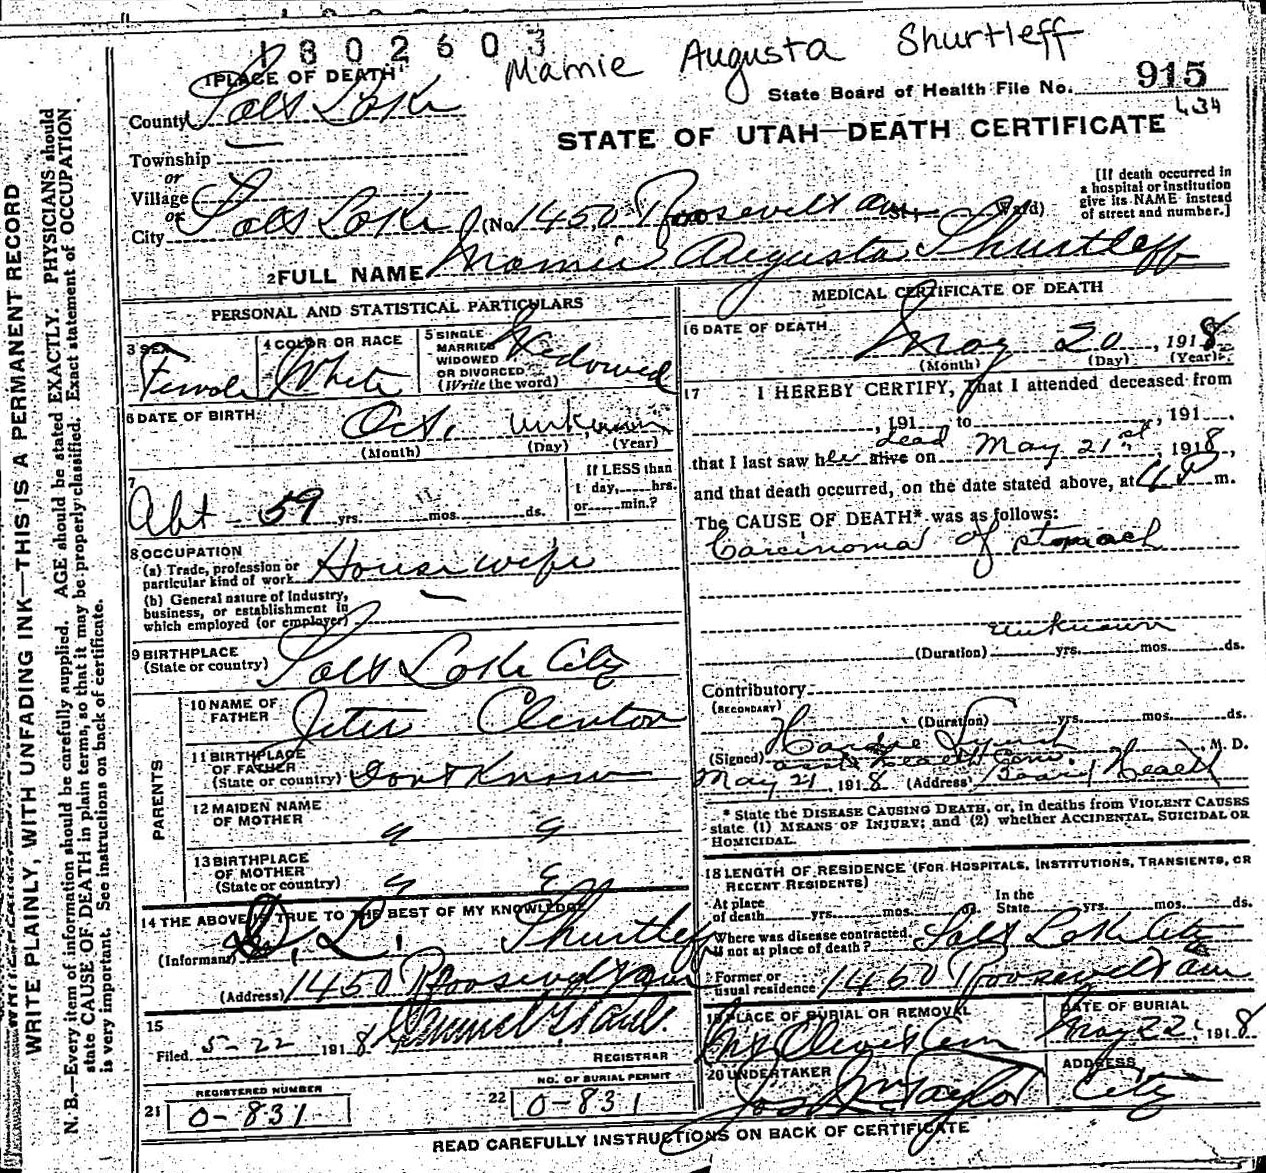 1802603
Mamie Augusta Shurtleff
1 PLACE OF DEATH
State Board of Health File No. 915
434
County Salt Lake
STATE OF UTAH—DEATH CERTIFICATE
Township
or
Village
or
City Salt Lake (No. 1450 Roosevelt ave St., Ward)
[If death occurred in
a hospital or institution
give its NAME instead
of street and number.]
2 FULL NAME Mamie Augusta Shurtleff
PERSONAL AND STATISTICAL PARTICULARS
3 SEX
Female
4 COLOR OR RACE
White
5 SINGLE
MARRIED
WIDOWED
OR DIVORCED
(Write the word)
Widowed
6 DATE OF BIRTH
Oct. unknown
(Month) (Day) (Year)
7
Abt - 59 yrs. 11 mos. ds.
If LESS than
1 day, hrs.
or min.?
8 OCCUPATION
(a) Trade, profession or
particular kind of work Housewife
(b) General nature of Industry,
business, or establishment in
which employed (or employer) —
9 BIRTHPLACE
(State or country) Salt Lake City
PARENTS
10 NAME OF
FATHER Jeter Clinton
11 BIRTHPLACE
OF FATHER
(State or country) Dont Know
12 MAIDEN NAME
OF MOTHER " "
13 BIRTHPLACE
OF MOTHER
(State or country) " "
14 THE ABOVE IS TRUE TO THE BEST OF MY KNOWLEDGE
(Informant) L. Shurtleff
(Address) 1450 Roosevelt ave
15
Filed 5-22 1918
REGISTRAR
21 REGISTERED NUMBER
0-831
22 NO. OF BURIAL PERMIT
0-831
MEDICAL CERTIFICATE OF DEATH
16 DATE OF DEATH
May 20, 1918
(Month) (Day) (Year)
17 I HEREBY CERTIFY, that I attended deceased from
, 191 , to , 191 .
that I last saw her alive dead on May 21st, 1918,
and that death occurred, on the date stated above, at 4 P m.
The CAUSE OF DEATH* was as follows:
Carcinoma of stomach
unknown
(Duration) yrs. mos. ds.
Contributory
(SECONDARY)
(Duration) yrs. mos. ds.
(Signed) M. D.
May 21, 1918 (Address) Board Health
* State the DISEASE CAUSING DEATH, or, in deaths from VIOLENT CAUSES
state (1) MEANS OF INJURY; and (2) whether ACCIDENTAL, SUICIDAL OR
HOMICIDAL.
18 LENGTH OF RESIDENCE (FOR HOSPITALS, INSTITUTIONS, TRANSIENTS, OR
RECENT RESIDENTS)
At place
of death yrs. mos. ds.
In the
State yrs. mos. ds.
Where was disease contracted,
if not at place of death? Salt Lake City
Former or
usual residence 1450 Roosevelt ave
19 PLACE OF BURIAL OR REMOVAL
Mt Olivet Cem
DATE OF BURIAL
May 22, 1918
20 UNDERTAKER
Taylor
ADDRESS
City
READ CAREFULLY INSTRUCTIONS ON BACK OF CERTIFICATE
WRITE PLAINLY, WITH UNFADING INK—THIS IS A PERMANENT RECORD
N. B.—Every item of information should be carefully supplied. AGE should be stated EXACTLY. PHYSICIANS should
state CAUSE OF DEATH in plain terms, so that it may be properly classified. Exact statement of OCCUPATION
is very important. See instructions on back of certificate.